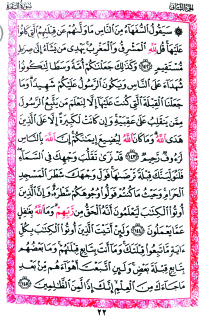 سَيَقُولُ السُّفَهَاءُ مِنَ النَّاسِ مَا وَلَّىٰهُمْ عَن قِبْلَتِهِمُ الَّتِي كَانُوا
عَلَيْهَا قُل لِّلَّهِ الْمَشْرِقُ وَالْمَغْرِبُ يَهْدِي مَن يَشَاءُ إِلَىٰ صِرَاطٍ
مُّسْتَقِيمٍ ﴿١٤٢﴾ وَكَذَٰلِكَ جَعَلْنَاكُمْ أُمَّةً وَسَطًا لِّتَكُونُوا
شُهَدَاءَ عَلَى النَّاسِ وَيَكُونَ الرَّسُولُ عَلَيْكُمْ شَهِيدًا وَمَا
جَعَلْنَا الْقِبْلَةَ الَّتِي كُنتَ عَلَيْهَا إِلَّا لِنَعْلَمَ مَن يَتَّبِعُ الرَّسُولَ
مِمَّن يَنقَلِبُ عَلَىٰ عَقِبَيْهِ وَإِن كَانَتْ لَكَبِيرَةً إِلَّا عَلَى الَّذِينَ
هَدَى اللَّهُ وَمَا كَانَ اللَّهُ لِيُضِيعَ إِيمَانَكُمْ إِنَّ اللَّهَ بِالنَّاسِ
لَرَءُوفٌ رَّحِيمٌ ﴿١٤٣﴾ قَدْ نَرَىٰ تَقَلُّبَ وَجْهِكَ فِي السَّمَاءِ
فَلَنُوَلِّيَنَّكَ قِبْلَةً تَرْضَاهَا فَوَلِّ وَجْهَكَ شَطْرَ الْمَسْجِدِ
الْحَرَامِ وَحَيْثُ مَا كُنتُمْ فَوَلُّوا وُجُوهَكُمْ شَطْرَهُ وَإِنَّ الَّذِينَ
أُوتُوا الْكِتَابَ لَيَعْلَمُونَ أَنَّهُ الْحَقُّ مِن رَّبِّهِمْ وَمَا اللَّهُ بِغَافِلٍ
عَمَّا يَعْمَلُونَ ﴿١٤٤﴾ وَلَئِنْ أَتَيْتَ الَّذِينَ أُوتُوا الْكِتَابَ بِكُلِّ
ءَايَةٍ مَّا تَبِعُوا قِبْلَتَكَ وَمَا أَنتَ بِتَابِعٍ قِبْلَتَهُمْ وَمَا بَعْضُهُم
بِتَابِعٍ قِبْلَةَ بَعْضٍ وَلَئِنِ اتَّبَعْتَ أَهْوَاءَهُم مِّن بَعْدِ
مَا جَاءَكَ مِنَ الْعِلْمِ إِنَّكَ إِذًا لَّمِنَ الظَّالِمِينَ ﴿١٤٥﴾
٢٢